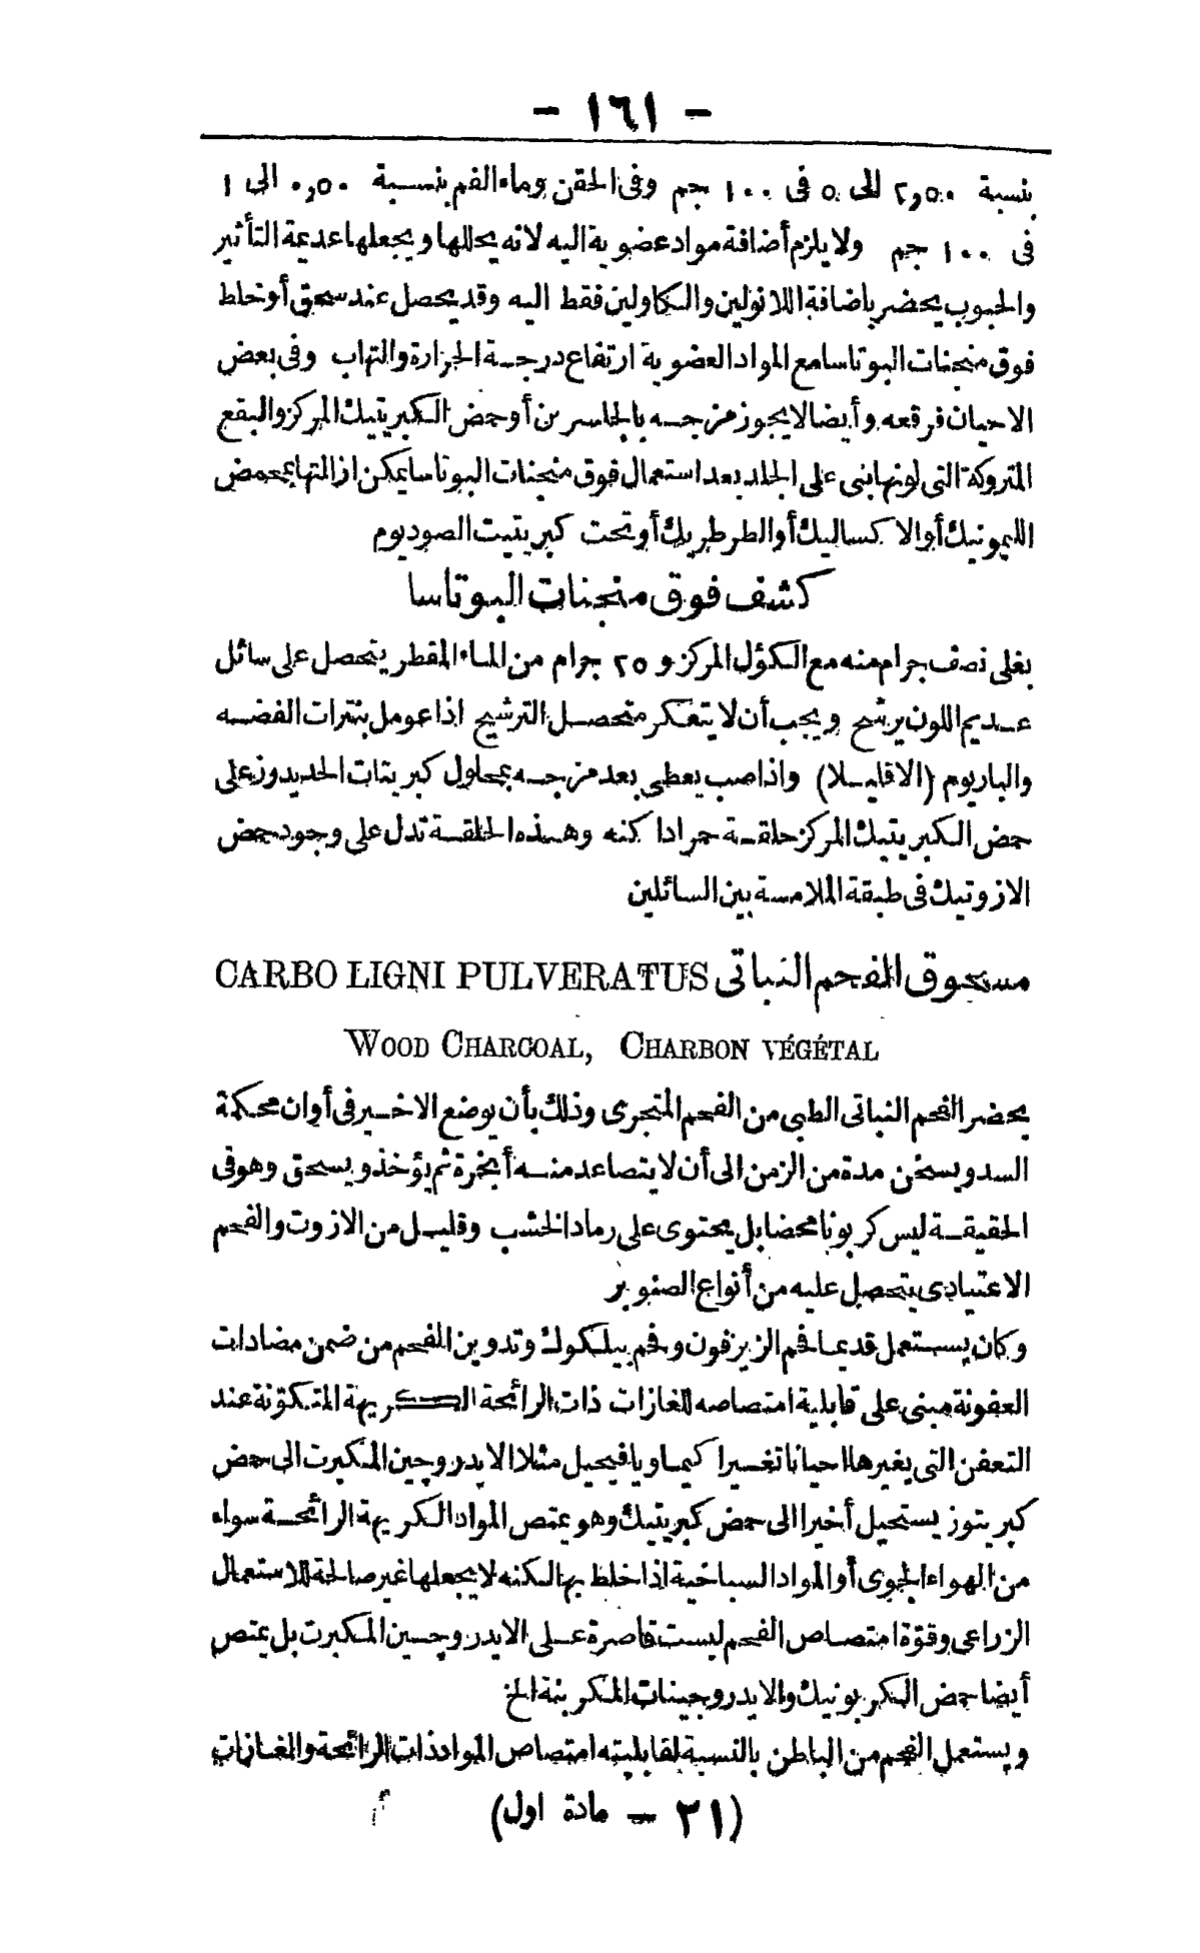 - ١٦١ -
بنسبة ٢,٥٠ الى ٥ فى ١٠٠ جم وفى الحقن وماء الفم بنسبة ٠,٥٠ الى ١
فى ١٠٠ جم ولا يلزم أضافة مواد عضوية اليه لانه يحللها ويجعلها عديمة التأثير
والحبوب يحضر باضافة اللانولين والكاولين فقط اليه وقد يحصل عند سحق أو خلط
فوق منجنات البوتاسا مع المواد العضوية ارتفاع درجة الحرارة والتهاب وفى بعض
الاحيان فرقعه وأيضا لا يجوز مزجه بالجلسرين أو حمض الكبريتيك المركز والبقع
المتروكة التى لونها بنى على الجلد بعد استعمال فوق منجنات البوتاسا يمكن ازالتها بحمض
الليمونيك أو الاكساليك أو الطرطريك أو تحت كبريتيت الصوديوم
كشف فوق منجنات البوتاسا
يغلى نصف جرام منه مع الكؤل المركز و ٢٥ جرام من الماء المقطر يتحصل على سائل
عديم اللون يرشح ويجب أن لا يتعكر متحصل الترشيح اذا عومل بنترات الفضه
والباريوم (الاقليلا) واذا صب يعطى بعد مزجه بمحلول كبريتات الحديدوز على
حمض الكبريتيك المركز حلقة حمرا داكنه وهذه الحلقة تدل على وجود حمض
الازوتيك فى طبقة الملامسة بين السائلين
مسحوق الفحم النباتى CARBO LIGNI PULVERATUS
WOOD CHARCOAL, CHARBON VÉGÉTAL
يحضر الفحم النباتى الطبى من الفحم المتجرى وذلك بأن يوضع الاخير فى أوان محكمة
السد ويسخن مدة من الزمن الى أن لا يتصاعد منه أبخرة ثم يؤخذ ويسحق وهو فى
الحقيقة ليس كربونا محضا بل يحتوى على رماد الخشب وقليل من الازوت والفحم
الاعتيادى يتحصل عليه من أنواع الصنوبر
وكان يستعمل قديما فحم الزيزفون وفحم بيلكوك وتدوين الفحم من ضمن مضادات
العفونة مبنى على قابلية امتصاصه للغازات ذات الرائحة الكريهة المتكوّنة عند
التعفن التى يغيرها احيانا تغييرا كيماويا فيحيل مثلا الايدروجين المكبرت الى حمض
كبريتوز يستحيل أخيرا الى حمض كبريتيك وهو يمتص المواد الكريهة الرائحة سواء
من الهواء الجوى أو المواد السباخية اذا خلط بها لكنه لا يجعلها غير صالحة للاستعمال
الزراعى وقوّة امتصاص الفحم ليست قاصرة على الايدروجين المكبرت بل يمتص
أيضا حمض الكربونيك والايدروجينات المكربنة الخ
ويستعمل الفحم من الباطن بالنسبة لقابليته امتصاص المواد ذات الرائحة والغازات
(٢١ - مادة اول)